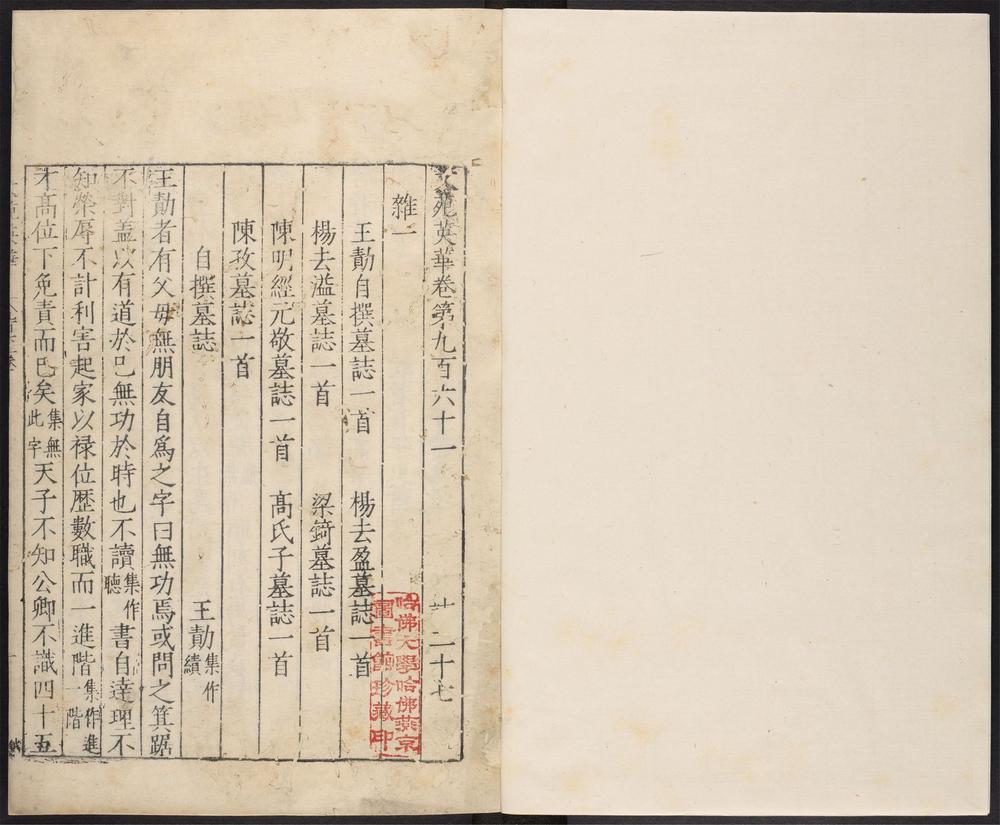 文苑英華卷第九百六十一 二十七
雜一
王勣自撰墓誌一首 楊去盈墓誌一首
楊去溢墓誌一首 梁錡墓誌一首
陳明經元敬墓誌一首 髙氏子墓誌一首
陳孜墓誌一首
自撰墓誌 王勣集作績
王勣者有父母無朋友自爲之字曰無功焉或問之箕踞
不對盖以有道於巳無功於時也不讀集作聴書自達理不
知榮辱不計利害起家以禄位歴數職而一進階集作進一階
才髙位下免責而巳矣集無此字天子不知公卿不識四十五
哈佛大學哈佛燕京
圖書館珍藏印